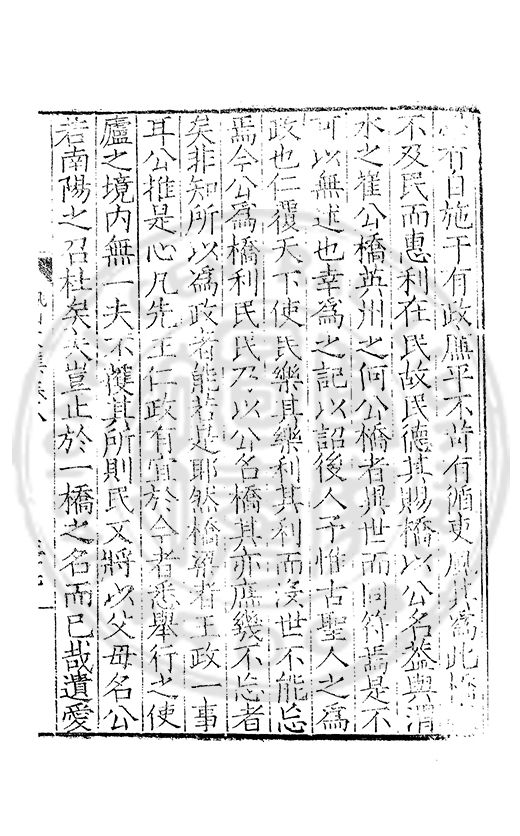 有日施于有政廉平不苛有循吏風其為此橋
不及民而惠利在民故民德其賜橋以公名葢與渭
水之崔公橋英州之何公橋者異世而同符焉是不
可以無述也幸為之記以詔後人予惟古聖人之為
政也仁覆天下使民樂其樂利其利而沒世不能忘
焉今公為橋利民民乃以公名橋其亦庶幾不忘者
矣非知所以為政者能若是耶然橋梁者王政一事
耳公推是心凡先王仁政有宜於今者悉舉行之使
廬之境内無一夫不獲其所則民又將以父母名公
若南陽之召杜矣夫豈止於一橋之名而已哉遺愛